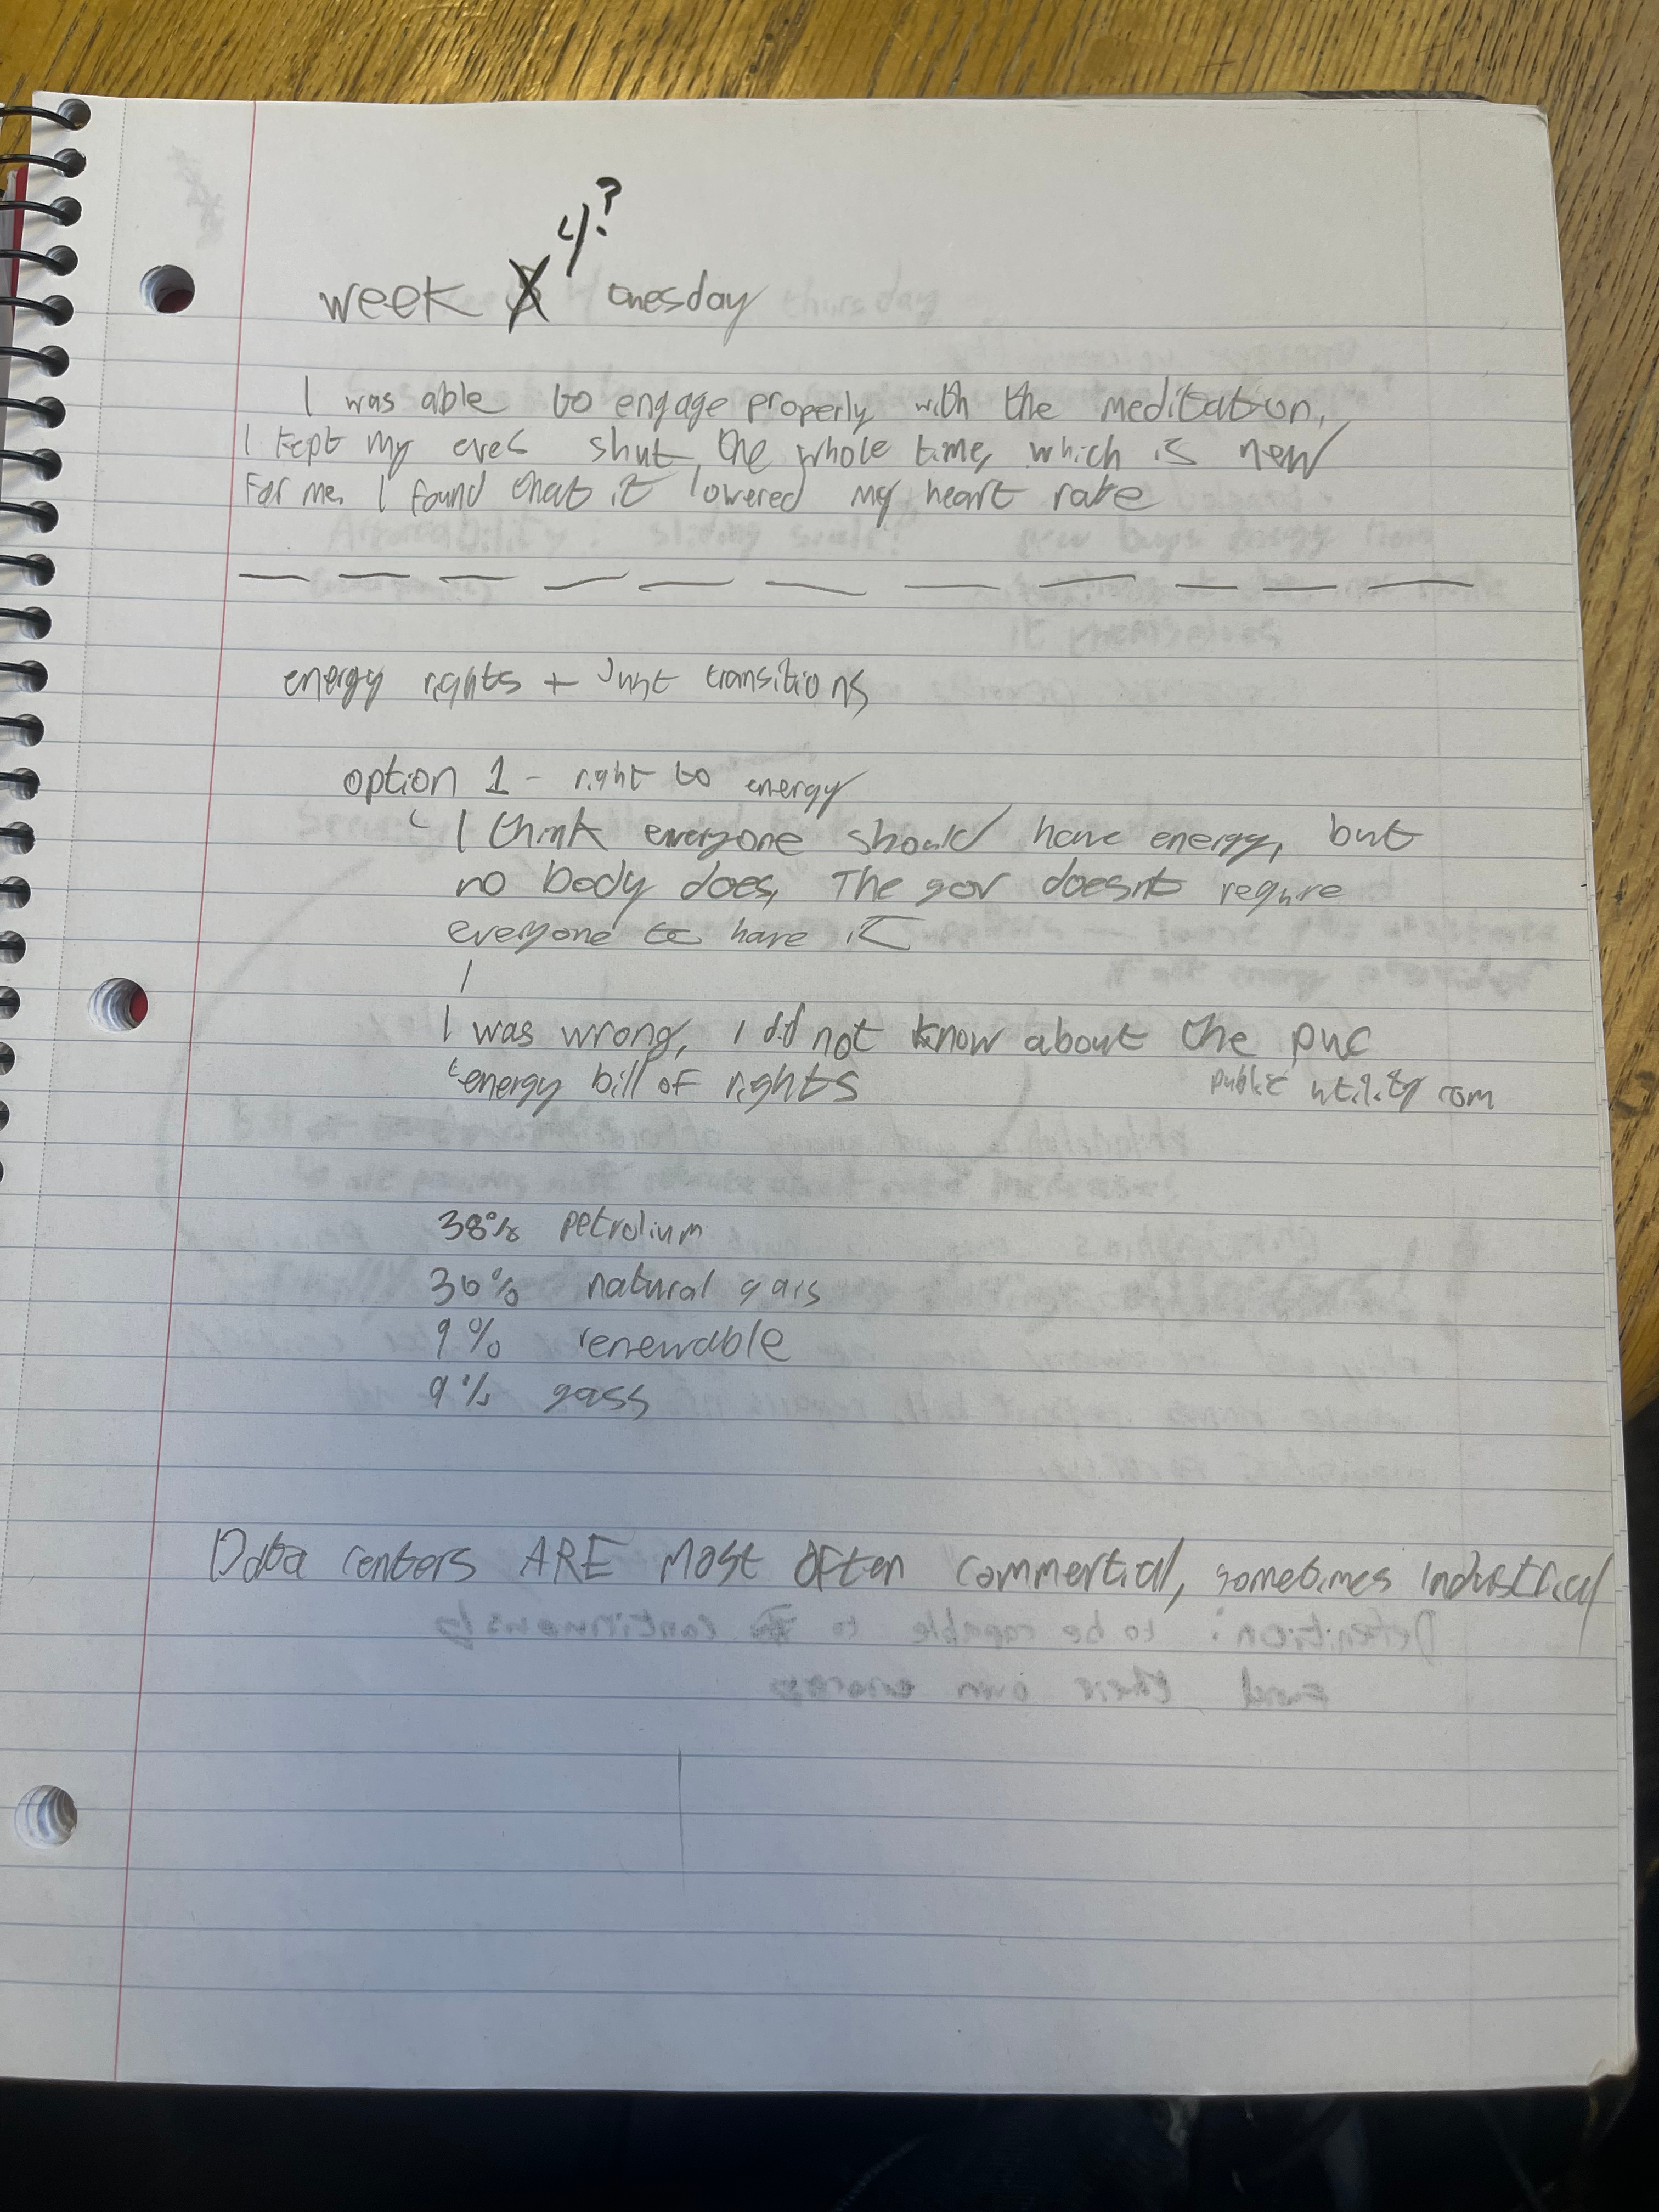 4?
week tuesday
I was able to engage properly with the meditation,
I kept my eyes shut, the whole time, which is new
For me. I found that it lowered my heart rate
energy rights + Just transitions
option 1 - right to energy
I think everyone should have energy, but
no body does, The gov doesnt require
everyone to have it
I was wrong, I did not know about the puc
energy bill of rights public utility com
38% petrolium
36% natural gas
9% renewable
9% gass
Data centers ARE Most Often commertial, sometimes industrical